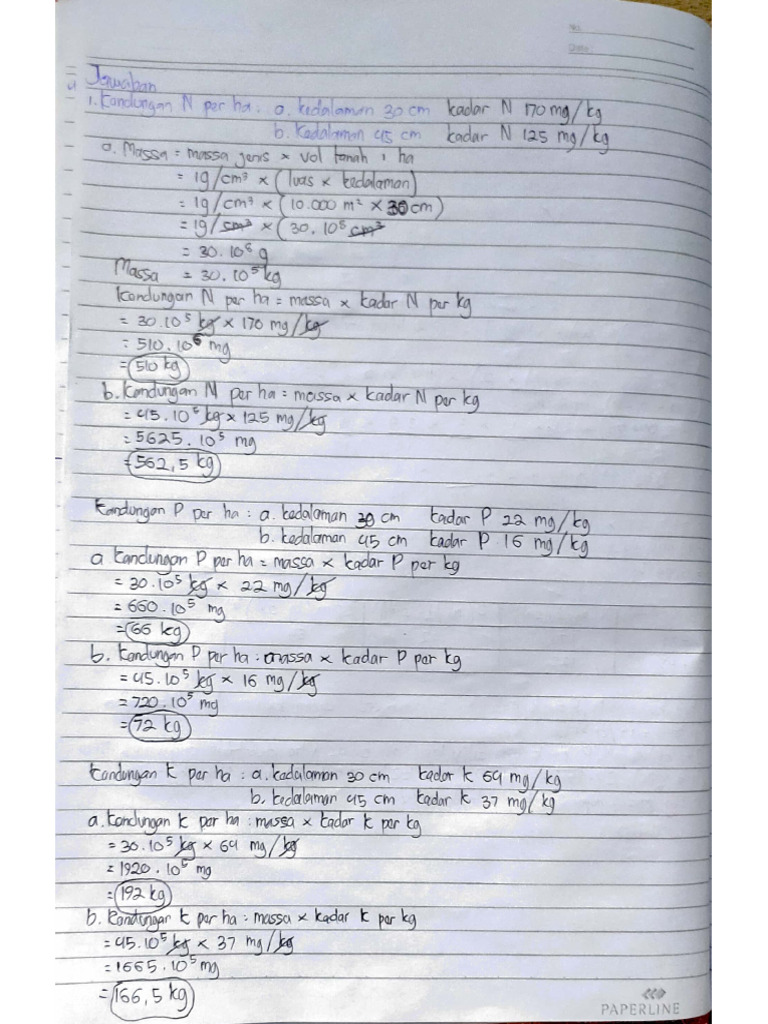 No.
Date:
Jawaban
1. Kandungan N per ha : a. kedalaman 30 cm kadar N 170 mg/kg
b. Kedalaman 45 cm kadar N 125 mg/kg
a. Massa = massa jenis × vol tanah 1 ha
= 1g/cm³ × (luas × kedalaman)
= 1g/cm³ × (10.000 m² × 30cm)
= 1g/cm³ × (30.10⁸ cm³
= 30.10⁸ g
Massa = 30.10⁵ kg
Kandungan N per ha = massa × kadar N per kg
= 30.10⁵ kg × 170 mg/kg
= 510.10⁶ mg
= 510 kg
b. Kandungan N per ha = massa × kadar N per kg
= 45.10⁵ kg × 125 mg/kg
= 5625.10⁵ mg
= 562,5 kg
Kandungan P per ha : a. kedalaman 30 cm kadar P 22 mg/kg
b. kedalaman 45 cm kadar P 16 mg/kg
a. Kandungan P per ha = massa × kadar P per kg
= 30.10⁵ kg × 22 mg/kg
= 660.10⁵ mg
= 66 kg
b. Kandungan P per ha : massa × kadar P per kg
= 45.10⁵ kg × 16 mg/kg
= 720.10⁵ mg
= 72 kg
Kandungan K per ha : a. kedalaman 30 cm kadar K 64 mg/kg
b. kedalaman 45 cm kadar K 37 mg/kg
a. Kandungan K per ha : massa × kadar K per kg
= 30.10⁵ kg × 64 mg/kg
= 1920.10⁵ mg
= 192 kg
b. Kandungan K per ha : massa × kadar K per kg
= 45.10⁵ kg × 37 mg/kg
= 1665.10⁵ mg
= 166,5 kg
PAPERLINE